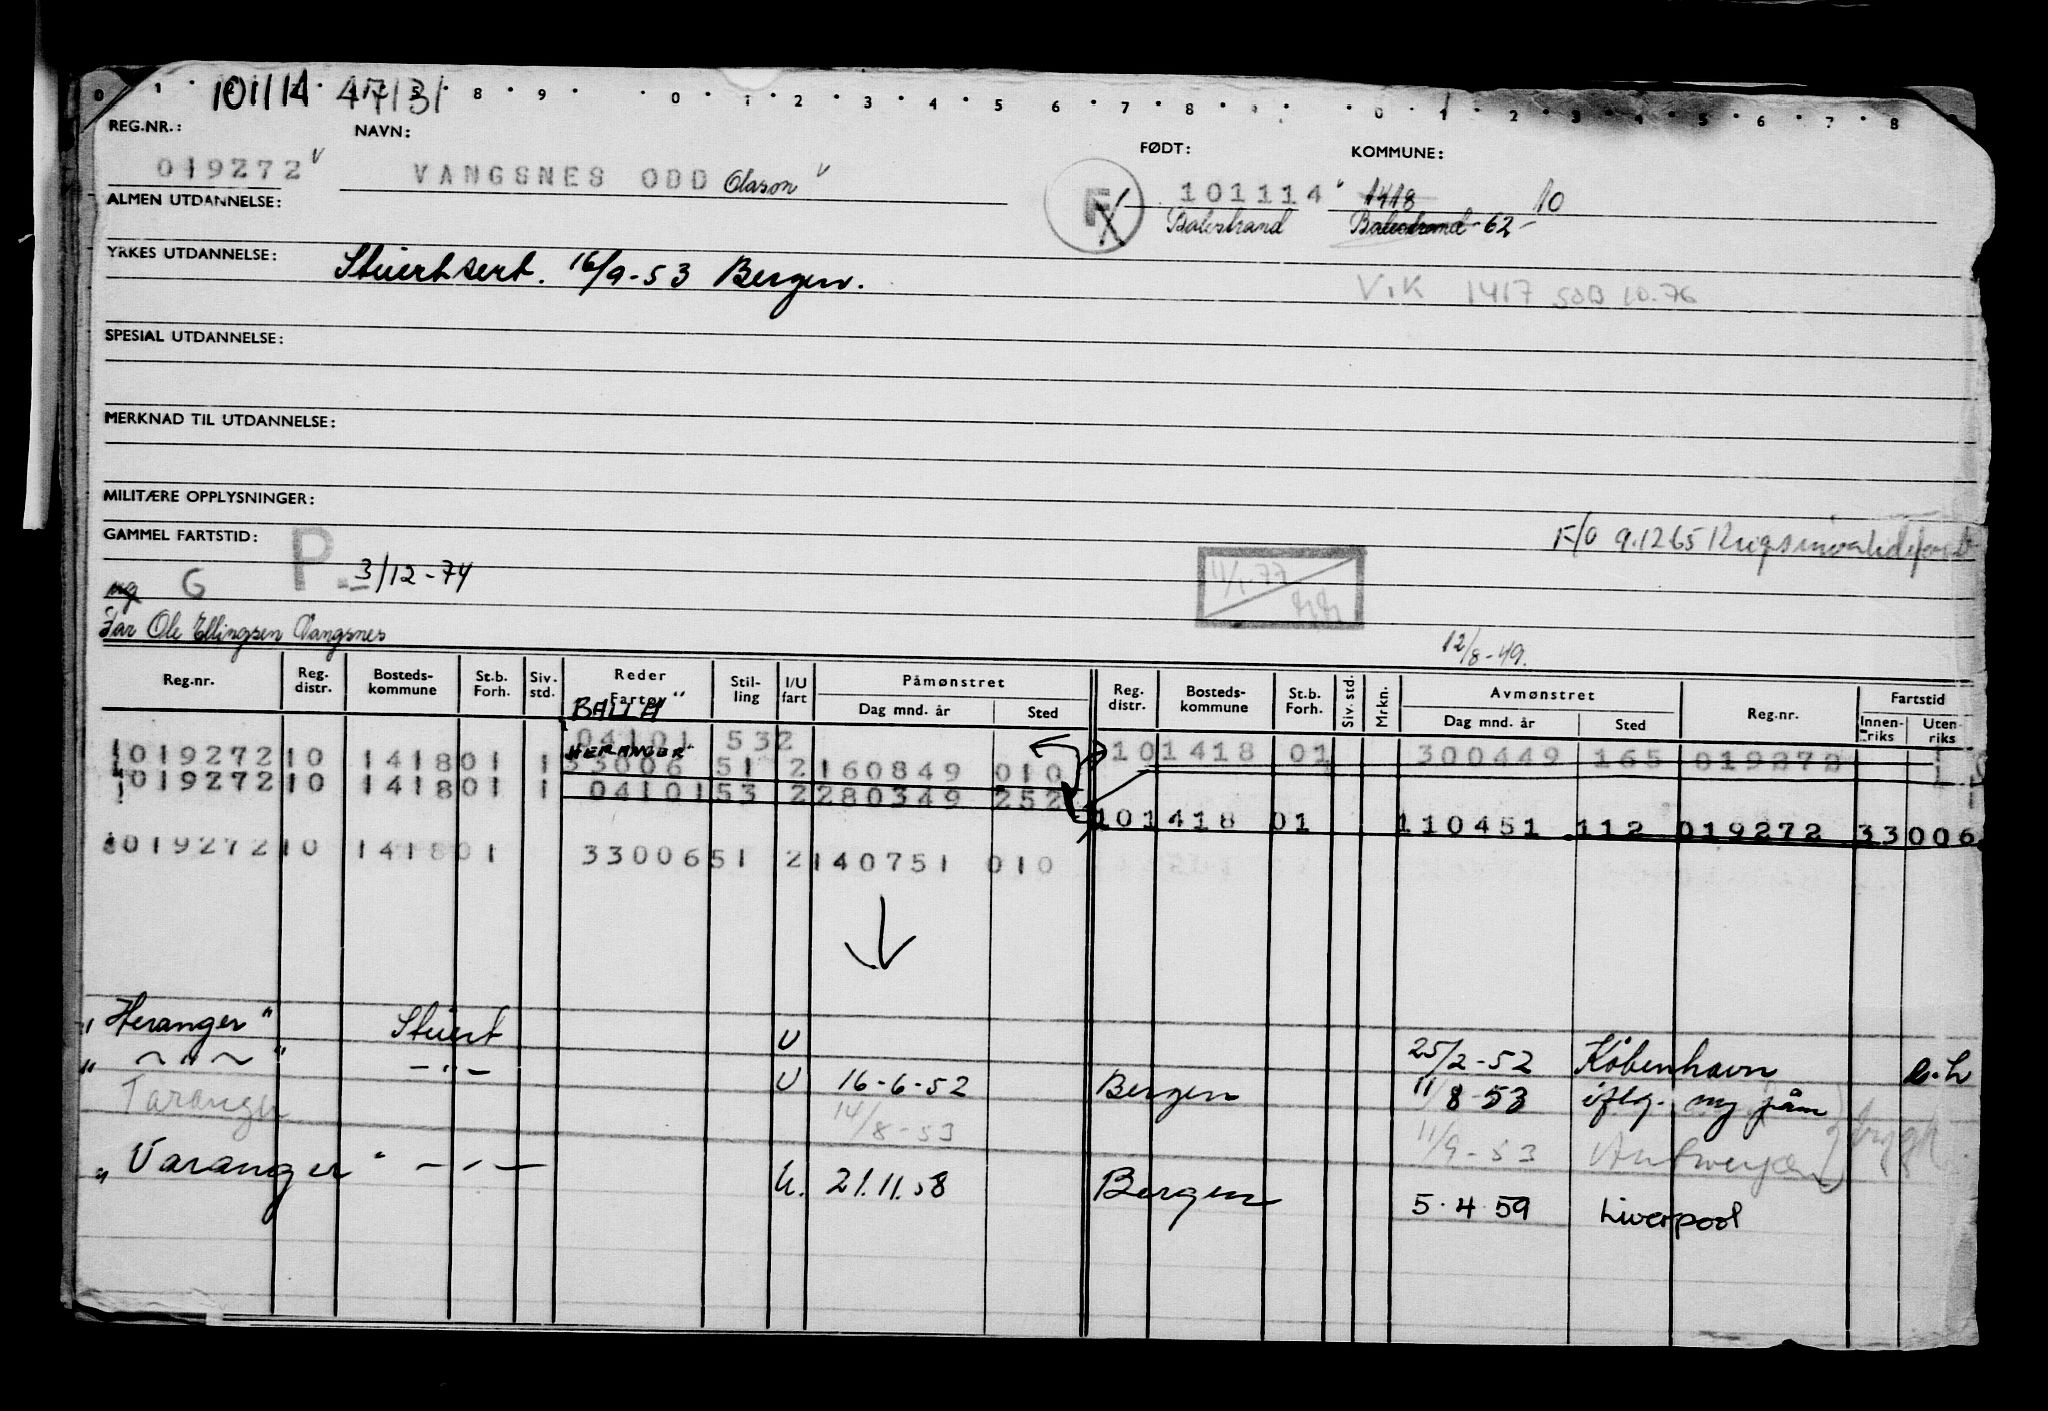 0 1 101114 47131 8 9 0 1 2 3 4 5 6 7 8 9 0 1 2 3 4 5 6 7 8
REG.NR.: NAVN: FØDT: KOMMUNE:
019272 v VANGSNES ODD Olason v F X 101114 v 1418 10
ALMEN UTDANNELSE: Balestrand Balestrand -62-
YRKES UTDANNELSE: Stuertsert. 16/9-53 Bergen. Vik 1417 SOB 10.76
SPESIAL UTDANNELSE:
MERKNAD TIL UTDANNELSE:
MILITÆRE OPPLYSNINGER:
GAMMEL FARTSTID: P F/O 9.1265 Krigsinvalideford
ug G 3/12-74 11/1-77
Far Ole Ellingsen Vangsnes
12/8-49.
Reg.nr. Reg. distr. Bosteds-kommune St.b. Forh. Siv. std. Reder Fartøy Stil-ling I/U fart Påmønstret Dag mnd. år Sted Reg. distr. Bosteds-kommune St.b. Forh. Siv. std. Mrkn. Avmønstret Dag mnd. år Sted Reg.nr. Fartstid Innen-riks Uten-riks
BALLA"
04101 532
HERANGER"
1019272 10 1418 01 1 33006 51 2 160849 010 10 1418 01 300449 165 019272
1019272 10 1418 01 1 04101 53 2 280349 252
10 1418 01 110451 112 019272 33 006
019272 10 1418 01 33006 51 2 140751 010
"Heranger" Stuert U 25/2-52 København
" ~ " ~ " - " - U 16-6-52 Bergen 11/8-53 iflg. ny påm
Taranger 14/8-53 11/9-53 Antwerpen
"Varanger" - " - U. 21.11.58 Bergen 5.4.59 Liverpool